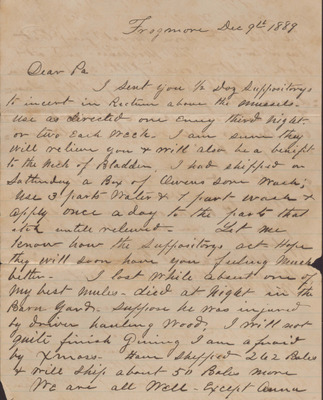 Frogmore Dec 9th 1889
Dear Pa
I sent you ½ Doz Suppositorys
to incert in Rectum above the mussels.
use as directed one Every third Night
or two Each Week. I am sure they
will relieve you & will also be a benefit
to the Neck of Bladder. I had shipped on
Satturday a Box of Owens sore Wash;
Use 3 parts Water & 1 part wash &
apply once a day to the parts that
itch untill relieved. Let me
Know how the Suppositorys act Hope
they will soon have you feeling Much
better. I lost While absent one of
my best mules. died at Night in the
Barn Yard. Suppose he was injured
by driver hauling Wood. I will not
Quite finish Gining I am afraid
by Xmas. Have Shipped 262 Bales
& will Ship about 50 Bales more
We are all Well. Except Anna